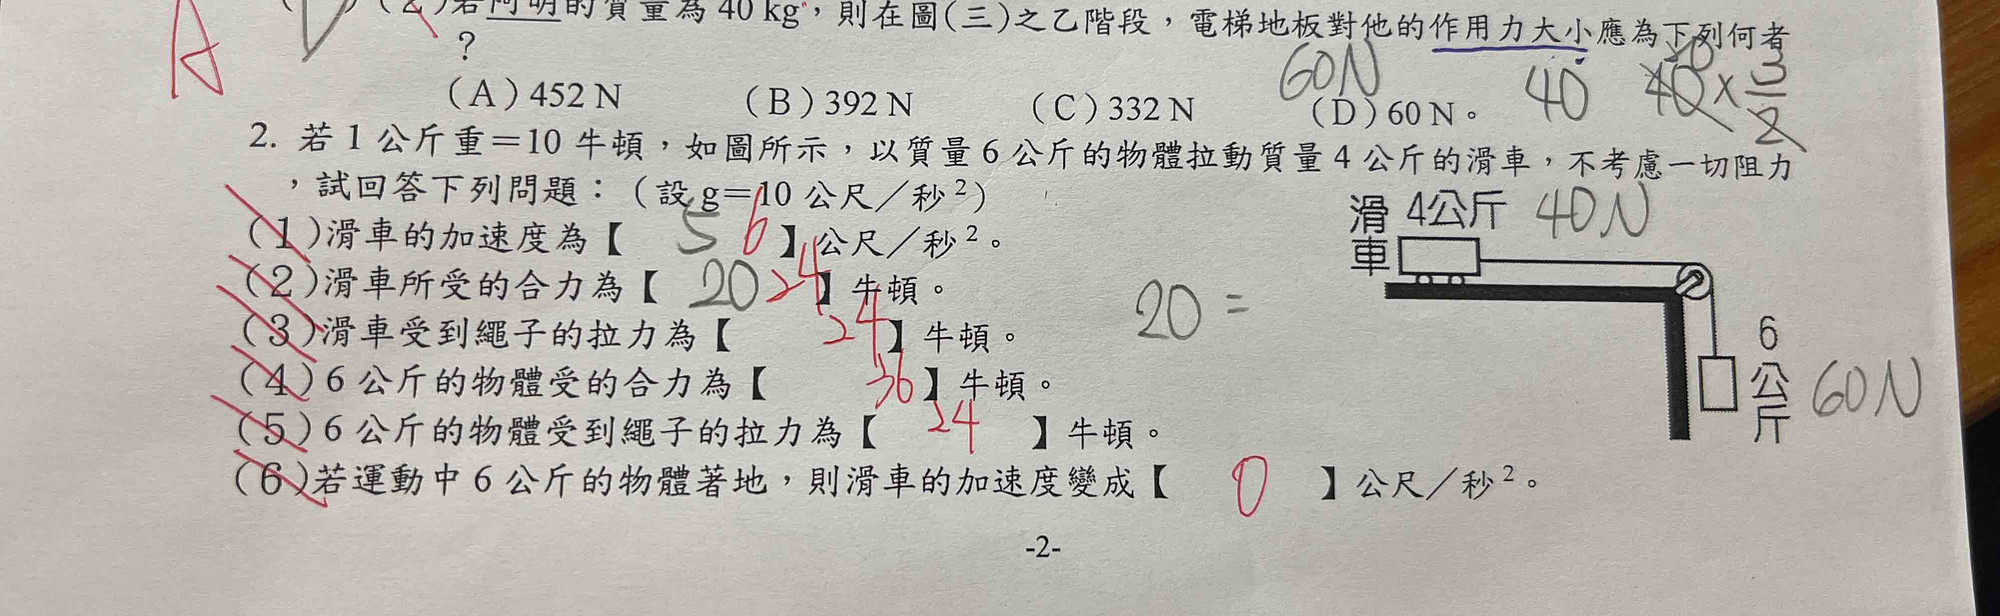 (2)若阿明的質量為 40 kg，則在圖(三)之乙階段，電梯地板對他的作用力大小應為下列何者
?
A
(A) 452 N (B) 392 N (C) 332 N (D) 60 N。
60N 40 40 × 3/2
2. 若 1 公斤重＝10 牛頓，如圖所示，以質量 6 公斤的物體拉動質量 4 公斤的滑車，不考慮一切阻力
，試回答下列問題：(設 g＝10 公尺／秒²)
(1)滑車的加速度為【 5 6 】公尺／秒²。
(2)滑車所受的合力為【 20 24 】牛頓。
(3)滑車受到繩子的拉力為【 24 】牛頓。
(4) 6 公斤的物體受的合力為【 36 】牛頓。
(5) 6 公斤的物體受到繩子的拉力為【 24 】牛頓。
(6)若運動中 6 公斤的物體著地，則滑車的加速度變成【 0 】公尺／秒²。
20 =
滑車 4公斤 40N
6公斤 60N
-2-